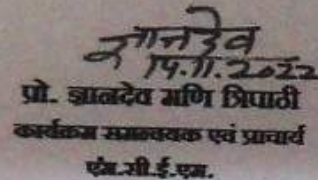 ज्ञानदेव
14.11.2022
प्रो. ज्ञानदेव मणि त्रिपाठी
कार्यक्रम समन्वयक एवं प्राचार्य
एम.सी.ई.एम.